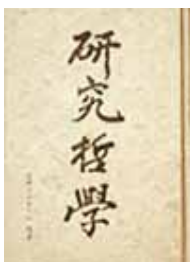 研究哲學